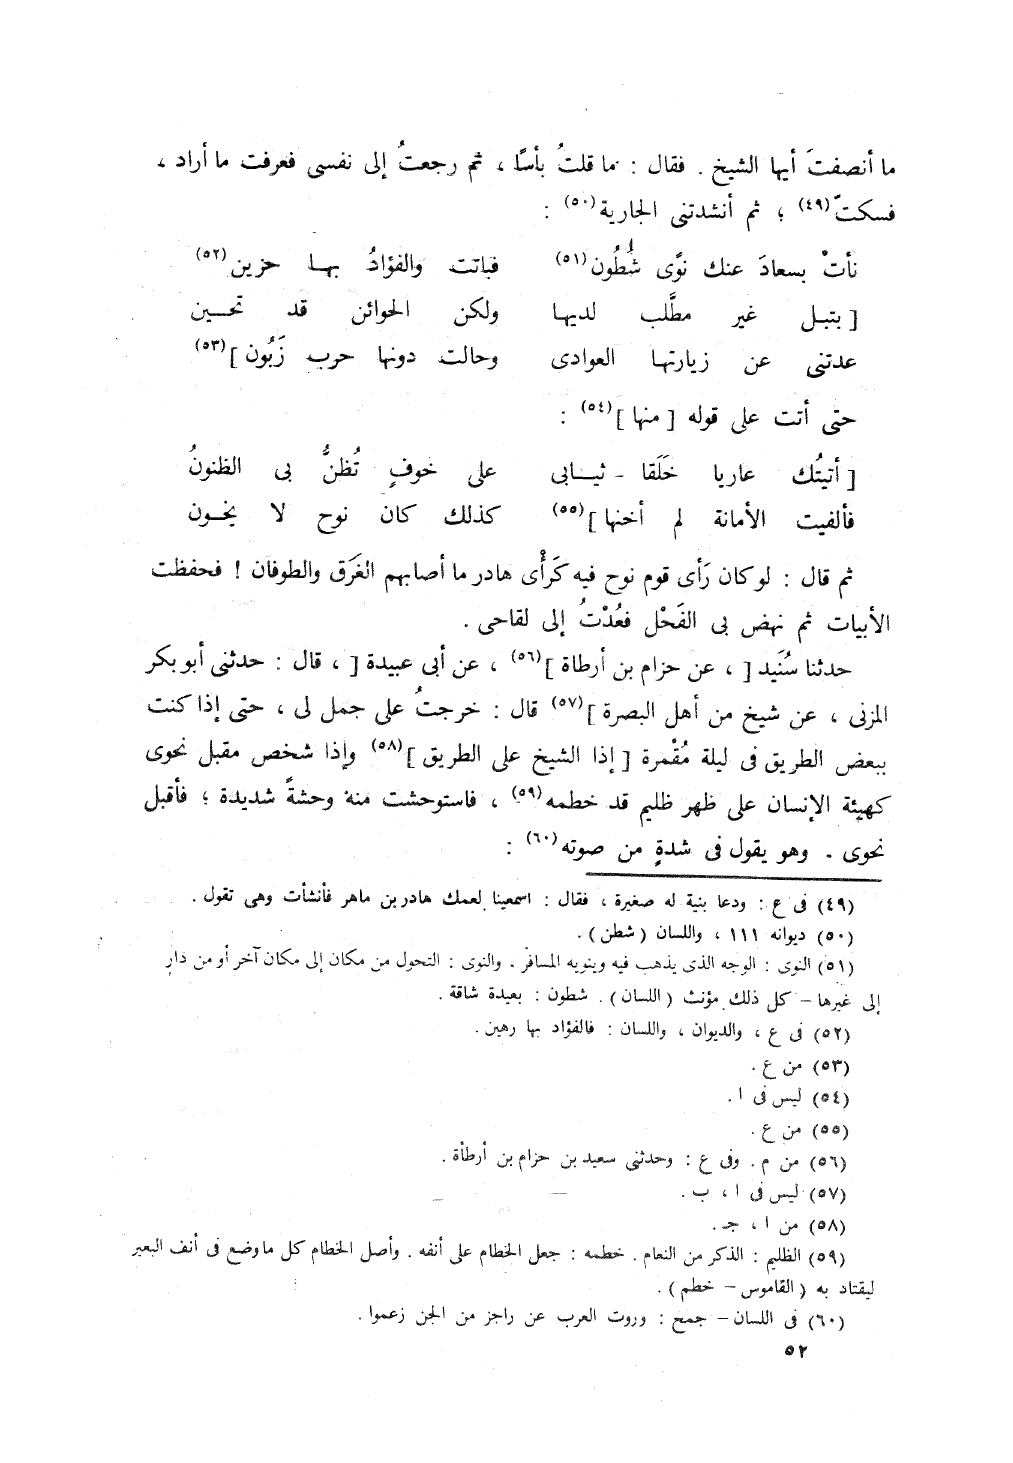 ما أنصفتَ أيها الشيخ . فقال : ما قلتُ بأسًا ، ثم رجعتُ إلى نفسى فعرفت ما أراد ،
فسكتّ(٤٩) ؛ ثم أنشدتنى الجارية(٥٠) :
نأتْ بسعادَ عنك نوًى شُطُون(٥١) فباتت والفؤادُ بها حزين(٥٢)
[ بتبل غير مطَّلب لديها ولكن الحوائن قد تحين
عدتنى عن زيارتها العوادى وحالت دونها حرب زَبُون ](٥٣)
حتى أتت على قوله [ منها ](٥٤) :
[ أتيتُك عاريا خَلَقا ثيابى على خوفٍ تُظنُّ بى الظنونُ
فألفيت الأمانة لم أخنها ](٥٥) كذلك كان نوح لا يخون
ثم قال : لو كان رَأى قوم نوح فيه كَرَأْى هادر ما أصابهم الغَرَق والطوفان ! فحفظت
الأبيات ثم نهض بى الفَحْل فعُدْتُ إلى لقاحى .
حدثنا سُنَيد [ ، عن حزام بن أرطاة ](٥٦) ، عن أبى عبيدة [ ، قال : حدثنى أبو بكر
المزنى ، عن شيخ من أهل البصرة ](٥٧) قال : خرجتُ على جمل لى ، حتى إذا كنت
ببعض الطريق فى ليلة مُقْمرة [ إذا الشيخ على الطريق ](٥٨) وإذا شخص مقبل نحوى
كهيئة الإنسان على ظهر ظليم قد خطمه(٥٩) ، فاستوحشت منه وحشةً شديدة ؛ فأقبل
نحوى . وهو يقول فى شدةٍ من صوته(٦٠) :
(٤٩) فى ع : ودعا بنية له صغيرة ، فقال : اسمعينا لعمك هادر بن ماهر فأنشأت وهى تقول .
(٥٠) ديوانه ١١١ ، واللسان (شطن) .
(٥١) النوى : الوجه الذى يذهب فيه وينويه المسافر . والنوى : التحول من مكان إلى مكان آخر أو من دار
إلى غيرها – كل ذلك مؤنث (اللسان) . شطون : بعيدة شاقة .
(٥٢) فى ع ، والديوان ، واللسان : فالفؤاد بها رهين .
(٥٣) من ع .
(٥٤) ليس فى ا .
(٥٥) من ع .
(٥٦) من م . وفى ع : وحدثنى سعيد بن حزام بن أرطأة .
(٥٧) ليس فى ا ، ب .
(٥٨) من ا ، جـ .
(٥٩) الظليم : الذكر من النعام . خطمه : جعل الخطام على أنفه . وأصل الخطام كل ما وضع فى أنف البعير
ليقتاد به (القاموس – خطم) .
(٦٠) فى اللسان – جمح : وروت العرب عن راجز من الجن زعموا .
٥٢